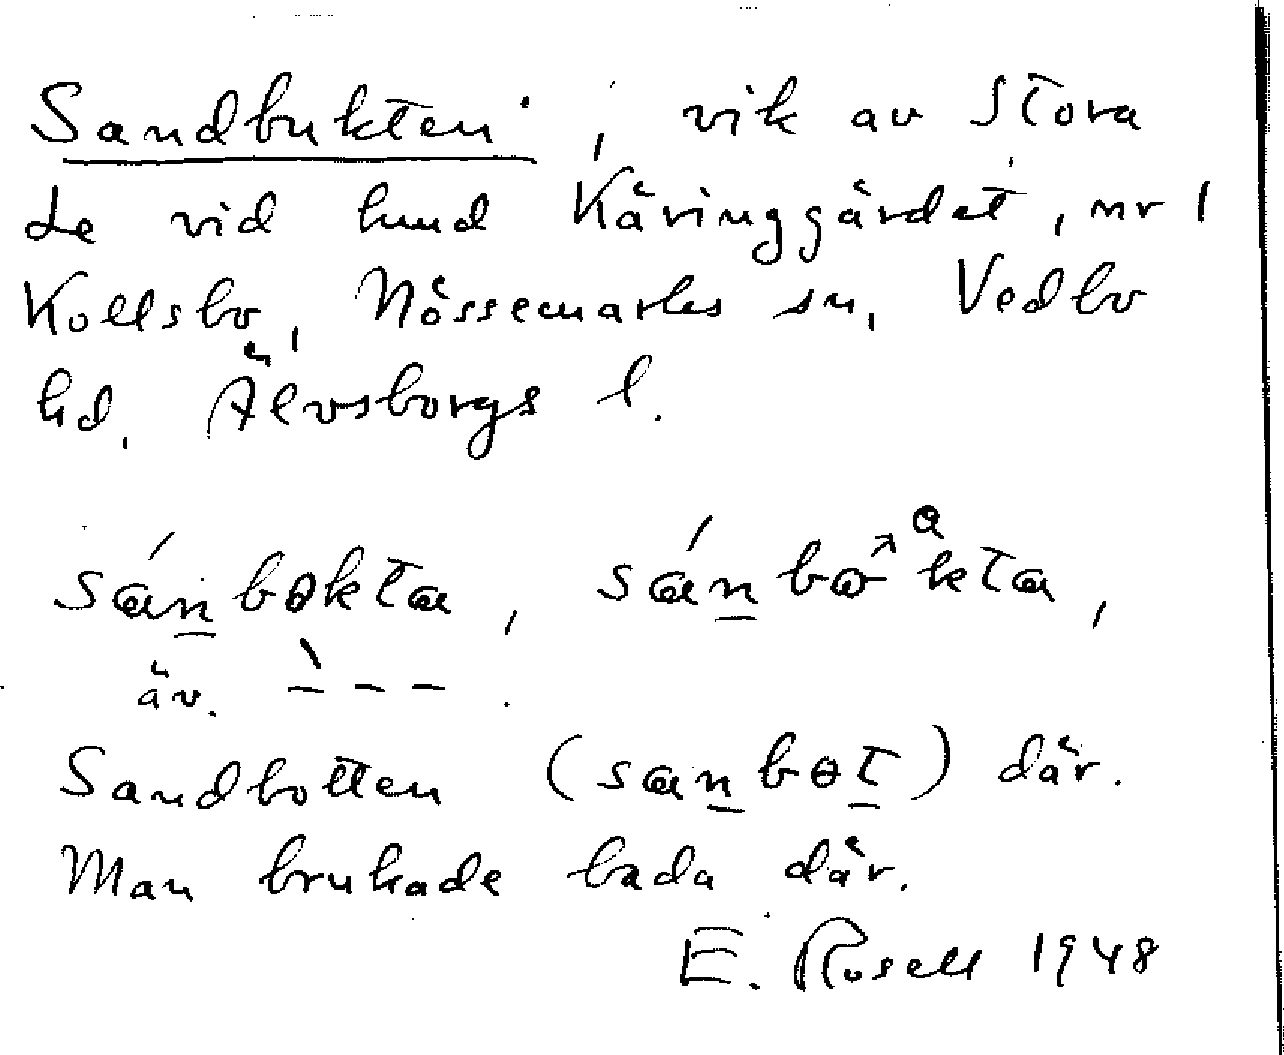 Sandbukten, vik av Stora
Le vid hmd Käringgärdet, nr 1
Kollsbo, Nössemarks sn, Vedbo
hd. Älvsborgs l.
sánbɵkta,
äv. `– – – .
Sandbotten (sanbɵt) där.
Man brukade bada där.
E. Rosell 1948